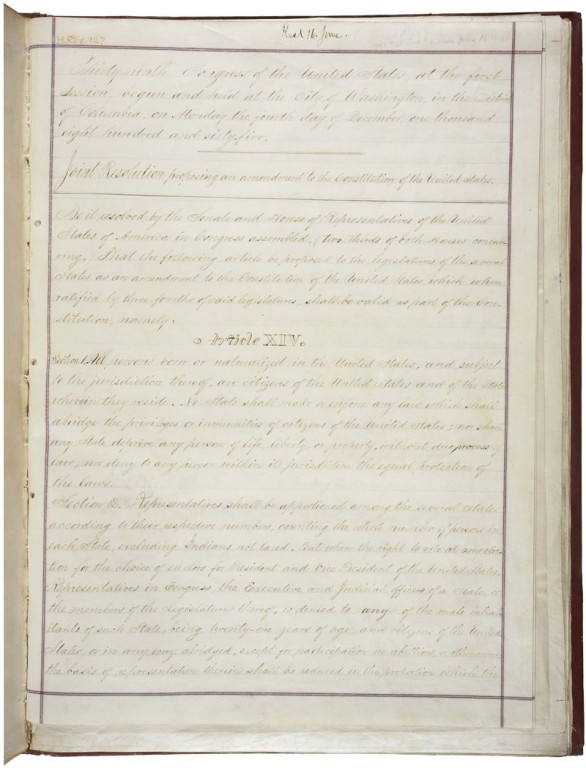 H.Res. 127
Recd 16 June.
Thirty-ninth Congress of the United States, at the first
Session, begun and held at the City of Washington, in the District
of Columbia, on Monday the fourth day of December, one thousand
eight hundred and sixty-five.
Joint Resolution proposing an amendment to the Constitution of the United States.
Be it resolved by the Senate and House of Representatives of the United
States of America in Congress assembled, (two thirds of both Houses concur-
ring,) That the following article be proposed to the legislatures of the several
States as an amendment to the Constitution of the United States, which, when
ratified by three fourths of said legislatures, shall be valid as part of the Con-
stitution, namely:
Article XIV.
Section 1. All persons born or naturalized in the United States, and subject
to the jurisdiction thereof, are citizens of the United States and of the State
wherein they reside. No State shall make or enforce any law which shall
abridge the privileges or immunities of citizens of the United States; nor shall
any State deprive any person of life, liberty, or property, without due process of
law; nor deny to any person within its jurisdiction the equal protection of
the laws.
Section 2. Representatives shall be apportioned among the several States
according to their respective numbers, counting the whole number of persons in
each State, excluding Indians not taxed. But when the right to vote at any elec-
tion for the choice of electors for President and Vice President of the United States,
Representatives in Congress, the Executive and Judicial officers of a State, or
the members of the Legislature thereof, is denied to any of the male inhabi-
tants of such State, being twenty-one years of age, and citizens of the United
States, or in any way abridged, except for participation in rebellion, or other crime,
the basis of representation therein shall be reduced in the proportion which the